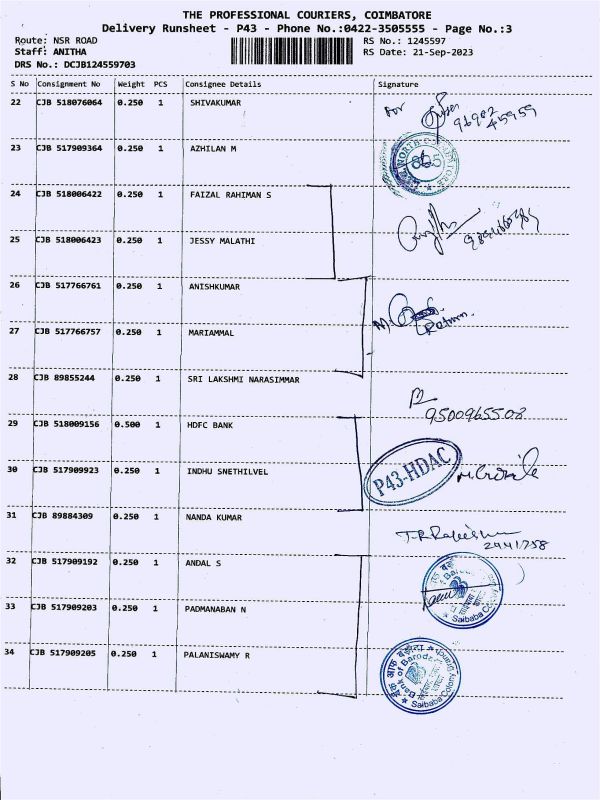 THE PROFESSIONAL COURIERS, COIMBATORE
Delivery Runsheet - P43 - Phone No.:0422-3505555 - Page No.:3
Route: NSR ROAD RS No.: 1245597
Staff: ANITHA RS Date: 21-Sep-2023
DRS No.: DCJB124559703
S No Consignment No Weight PCS Consignee Details Signature
22 CJB 518076064 0.250 1 SHIVAKUMAR
for
96982
45959
23 CJB 517909364 0.250 1 AZHILAN M
24 CJB 518006422 0.250 1 FAIZAL RAHIMAN S
25 CJB 518006423 0.250 1 JESSY MALATHI
26 CJB 517766761 0.250 1 ANISHKUMAR
27 CJB 517766757 0.250 1 MARIAMMAL
Return
28 CJB 89855244 0.250 1 SRI LAKSHMI NARASIMMAR
9500965508
29 CJB 518009156 0.500 1 HDFC BANK
P43-HDAC
30 CJB 517909923 0.250 1 INDHU SNETHILVEL
31 CJB 89884309 0.250 1 NANDA KUMAR
2441758
32 CJB 517909192 0.250 1 ANDAL S
Saibaba Colony
33 CJB 517909203 0.250 1 PADMANABAN N
34 CJB 517909205 0.250 1 PALANISWAMY R
Bank of Baroda
Saibaba Colony